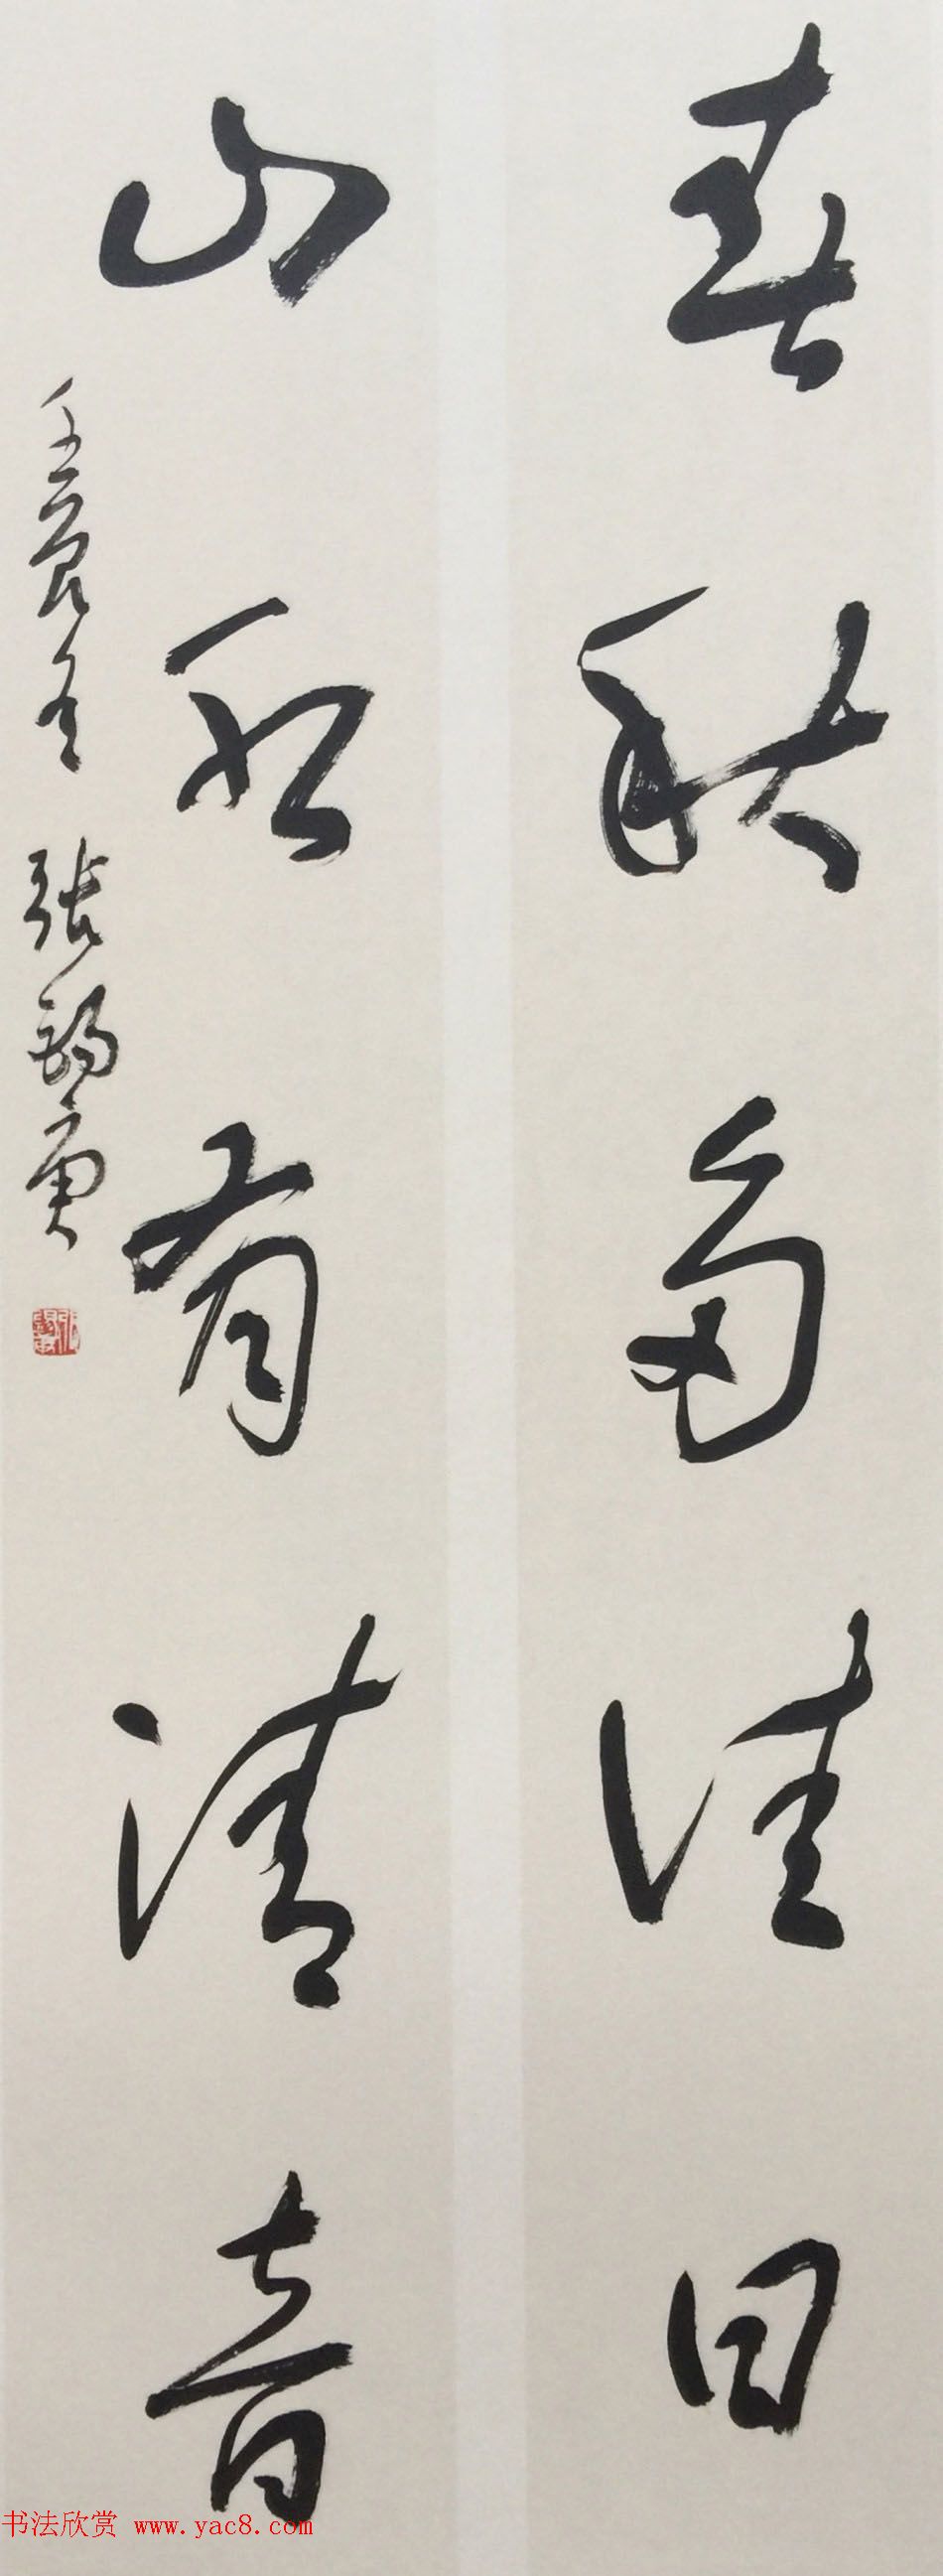 春秋多佳日
山水有清音
壬寅冬 张锡庚
书法欣赏 www.yac8.com